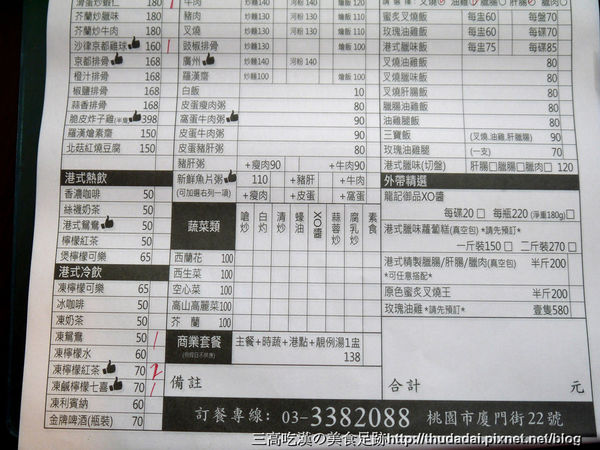 滑蛋炒蝦仁 180
芥蘭炒臘味 180
芥蘭炒牛肉 180
沙律京都雞球 160 1
京都排骨 168
橙汁排骨 168
椒鹽排骨 168
蒜香排骨 168
脆皮炸子雞(半隻) 398
羅漢燴素齋 150
北菇紅燒豆腐 150
港式熱飲
香濃咖啡 50
絲襪奶茶 50
港式鴛鴦 50
檸檬紅茶 50
煲檸檬可樂 65
港式冷飲
凍檸檬可樂 65
冰咖啡 50
凍奶茶 50
凍鴛鴦 50 1
凍檸檬水 60
凍檸檬紅茶 70 2
凍鹹檸檬七喜 70 1
凍利賓納 60
金牌啤酒(瓶裝) 70
牛肉 炒麵140 河粉 140 燴飯 120
豬肉 炒麵130 河粉 130 燴飯 110
1 豉椒排骨 炒麵130 河粉 130 燴飯 110
廣州 炒麵140 河粉 140
羅漢齋 炒麵100 燴飯 100
白飯 10
皮蛋瘦肉粥 80
窩蛋牛肉粥 90
皮蛋牛肉粥 90
皮蛋豬肝粥 80
豬肝粥 +瘦肉90 +牛肉90
新鮮魚片粥 110 +豬肝 +牛肉
(可加選右列一項) +瘦肉 +皮蛋 +窩蛋
蔬菜類 嗆炒 白灼 清炒 蠔油 XO醬 蒜蓉炒 腐乳炒 素食
西蘭花 100
西生菜 100
空心菜 100
高山高麗菜 100
芥 蘭 100
商業套餐
(例假日不供應)
主餐+時蔬+港點+靚例湯1盅
138
備註
蜜炙叉燒飯 每盅60 每盤70
玫瑰油雞飯 每盅60 每碟70
港式臘味飯 每盅75 每碟85
叉燒油雞飯 80
叉燒臘味飯 80
叉燒肝腸飯 80
臘腸油雞飯 80
油雞腿飯 80
三寶飯 (叉燒,油雞,肝臘腸) 90
玫瑰油雞腿 (一支) 70
港式臘味(切盤) 肝腸□臘腸□臘肉□ 120
外帶精選
龍記御品XO醬
每碟20 □ 每瓶220 (淨重180g)□
港式臘味蘿蔔糕(真空包) *請先預訂*
一斤裝150 □ 二斤裝270 □
港式精製臘腸/肝腸/臘肉(真空包) 半斤200
*可任意搭配*
原色蜜炙叉燒王 半斤200
玫瑰油雞 *請先預訂* 壹隻580
合計 元
訂餐專線：03-3382088 桃園市廈門街22號
三高吃漢の美食足跡http://thudadai.pixnet.net/blog